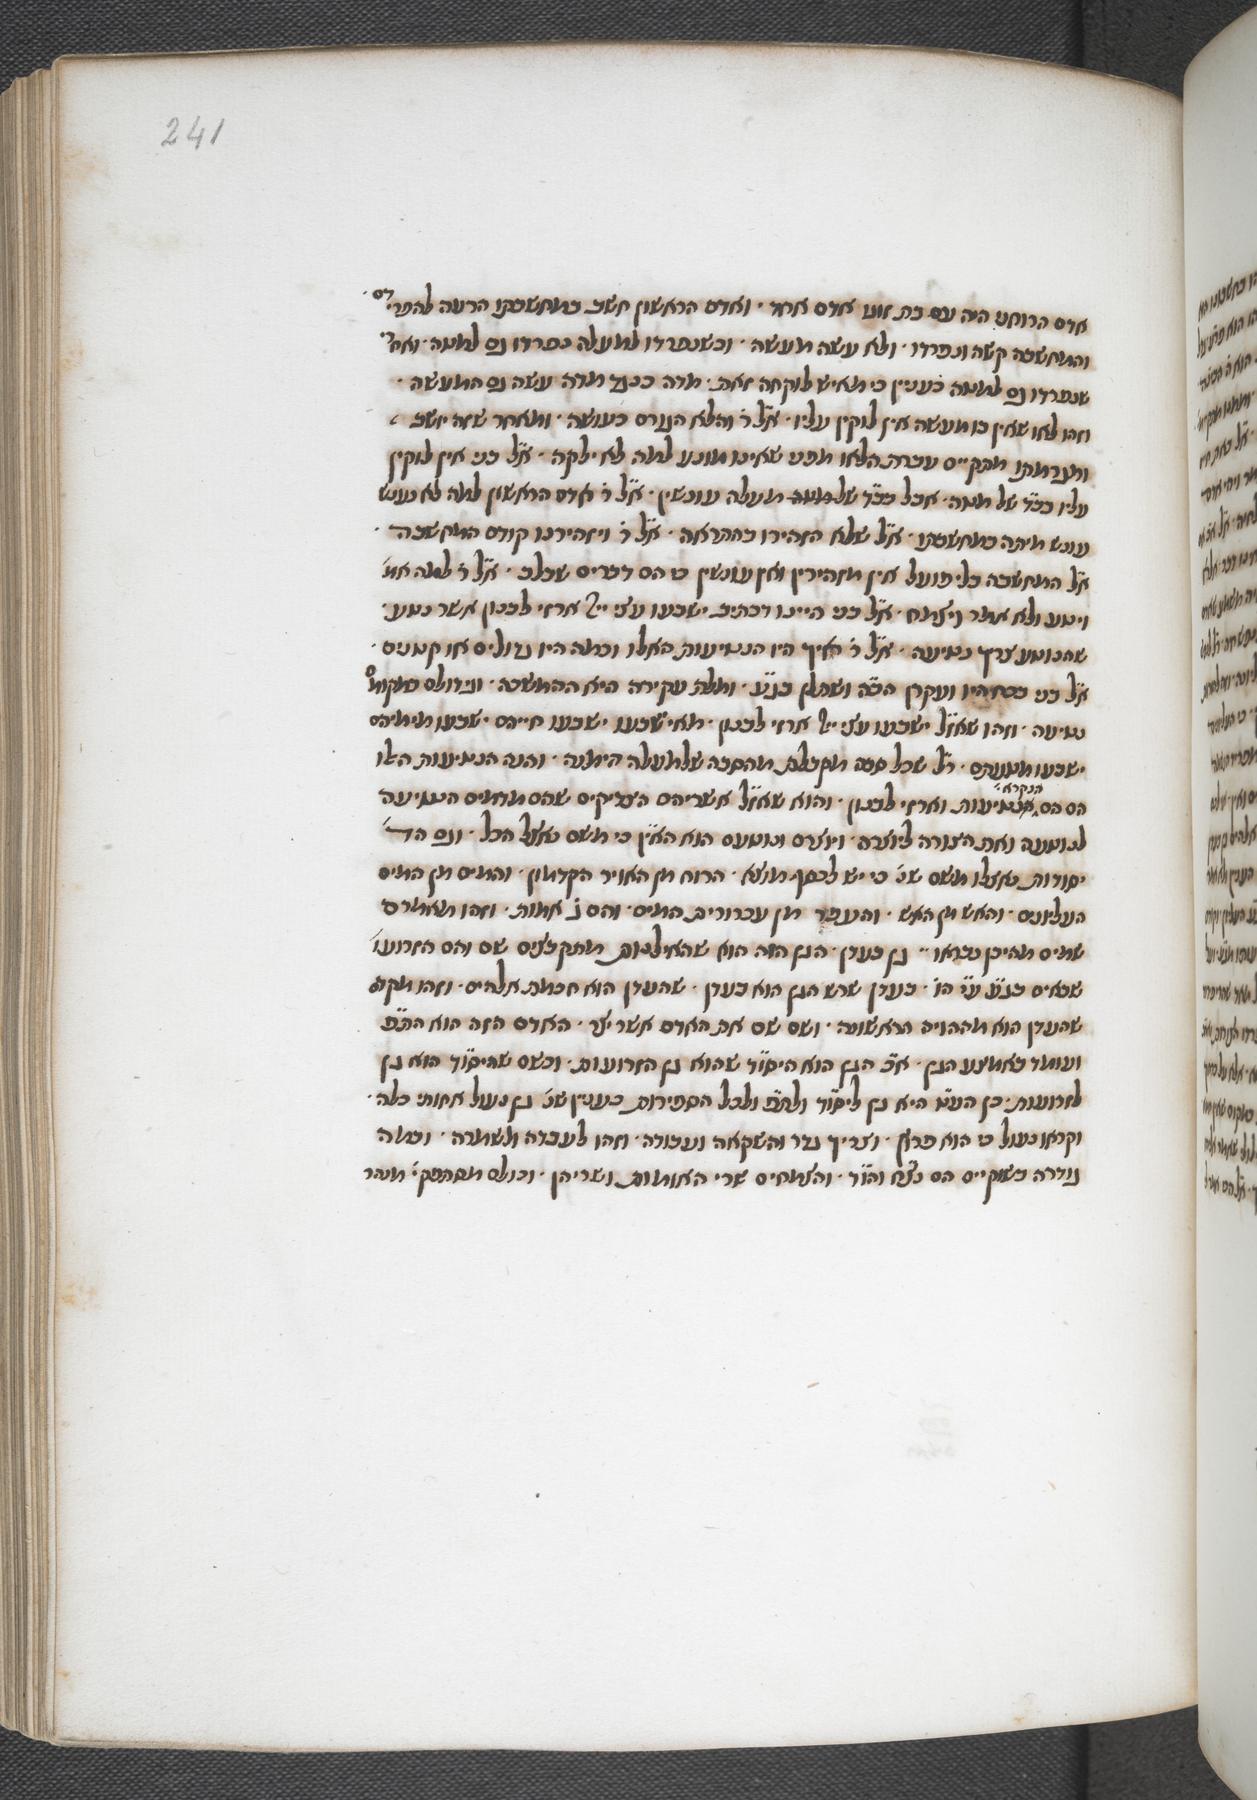 241
אדם הרוחני היה עם בת זוגו אדם אחד · ואדם הראשון חשב במחשבתו הרעה להפרידם ·
והמחשבה קשה ונפרדו · ולא עשה מעשה · וכשנפרדו למעלה נפרדו גם למטה · ואחר
שנפרדו גם למטה כענין כי מאיש לוקחה זאת · מדה כנגד מדה עשה גם המעשה ·
וזהו לאו שאין בו מעשה אין לוקין עליו · א״ל ר׳ והלא הגורם כעושה · ומאחר שזה יושב
ומערמתו מתקיים עברת הלאו מפני שאינו מונע למה לא ילקה · א״ל בני אין לוקין
עליו בב״ד של מטה · אבל בב״ד של מעלה עונשין · א״ל ר׳ אדם הראשון למה לא נענש
עונש מיתה במחשבתו · א״ל שלא הזהירו בהתראה · א״ל ר׳ ויזהירנו קודם המחשבה ·
א״ל המחשבה בלי פועל אין מזהירין ואין עונשין כי הם דברים שבלב · א״ל ר׳ למה אמ׳
ויטע ולא אמר ויצמח · א״ל בני היינו דכתיב ישבעו עצי יי׳ ארזי לבנון אשר נטע ·
שהנוטע צריך נטיעה · א״ל ר׳ איך היו הנטיעות האלו וכמה היו גדולים או קטנים ·
א״ל בני היו ועקרן הב״ה ושתלן בג״ע · ומלת עקירה היא ההמשכה · וגידולם מקום
נטיעה · וזהו שארז״ל ישבעו עצי יי׳ ארזי לבנון · מאי ישבעו ישבעו חייהם ישבעו מימיהם
ישבעו מטעתם · ר״ל שכל סבה מקבלת מהסבה שלמעלה הימנה · והנה הנטיעות האלו
הם הם הנקרא׳ נטיעות וארזי לבנון · והוא שארז״ל אשריהם הצדיקים שהם מדמים הנטיעה
לנוטעה ואת הצורה ליוצרה · ויוצרם ונוטעם הוא האי״ן כי משם נאצל הכל · וגם הד׳
יסודות נאצלו משם שנ׳ כי יש לכסף מוצא · הרוח מן האויר הקדמון · והמים מן המים
העליונים · והאש מן האש · והעפר מן עכרורית המים · והם ג׳ אמות · וזהו מאמרם
שמים מהיכן נבראו ·· גן בעדן · הגן הזה הוא שהאילנות מתקבצים שם והם הזרועו׳
שבאים בג״ע ע״י הו׳ · בעדן שרש הגן הוא בעדן · שהעדן הוא חכמת אלהים · וזהו מקדם
שהעדן הוא מההויה הראשונה · ושם שם את האדם אשר יצר · האדם הזה הוא הת״ת
ועומד באמצע הגן · א״כ הגן הוא היסו״ד שהוא גן הזרועות · וכשם שהיסו״ד הוא גן
לזרועות · כן העט׳ היא גן ליסו״ד ולת״ת ולכל הספירות כענין שנ׳ גן נעול אחותי כלה ·
וקראו נעול כי הוא פרוץ · וצריך גדר והשקאה ועבודה · וזהו לעבדה ולשמרה · וכמה
גודרה בשוקיים הם נצ״ח והו״ד · והצמחים שרי האומות ושריהן · וכולם מסתפק׳ מנהר